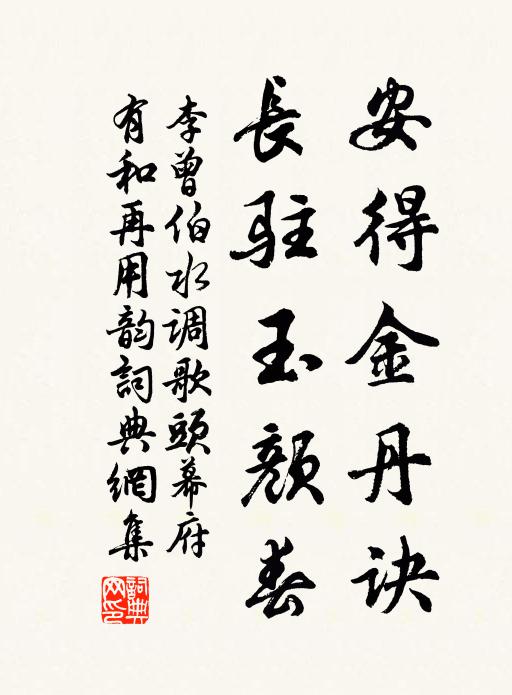 安得金丹诀
長駐玉顏春
李曾伯水调歌頭幕府
有和再用韵詞典網集
詞典網印